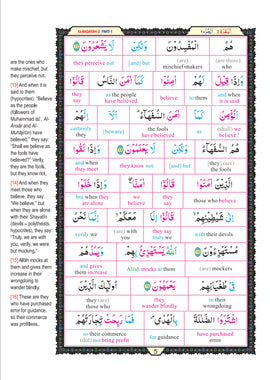 AL-BAQARAH-2 PART-1
هُمُ الْمُفْسِدُونَ وَلَٰكِن لَّا يَشْعُرُونَ ١٢
they perceive not [and] but (are) mischief-makers (are those) who
وَإِذَا قِيلَ لَهُمْ آمِنُوا كَمَا آمَنَ النَّاسُ قَالُوا
they say as the people have believed believe to them and when it is said
أَنُؤْمِنُ كَمَا آمَنَ السُّفَهَاءُ أَلَا إِنَّهُمْ
certainly they [beware] the fools have believed as (shall) we believe?
هُمُ السُّفَهَاءُ وَلَٰكِن لَّا يَعْلَمُونَ ١٣ وَإِذَا لَقُوا
and when they meet they know not [and] but [they] (are) the fools
الَّذِينَ آمَنُوا قَالُوا آمَنَّا وَإِذَا خَلَوْا
but when they are alone we believe they say those who believe
إِلَىٰ شَيَاطِينِهِمْ قَالُوا إِنَّا مَعَكُمْ إِنَّمَا نَحْنُ
verily we (are) with you they say truly we with their devils
مُسْتَهْزِئُونَ ١٤ اللَّهُ يَسْتَهْزِئُ بِهِمْ وَيَمُدُّهُمْ
and gives them increase Allah mocks at them (are) mockers
فِي طُغْيَانِهِمْ يَعْمَهُونَ ١٥ أُولَٰئِكَ الَّذِينَ
they (are) those who they wander blindly in their wrongdoing
اشْتَرَوُا الضَّلَالَةَ بِالْهُدَىٰ فَمَا رَبِحَت تِّجَارَتُهُمْ
so their commerce (did) not bring profit for guidance have purchased error
5
are the ones who
make mischief, but
they perceive not.
[13] And when it is
said to them
(hypocrites): "Believe
as the people
(followers of
Muhammad
Ansâr and Al-
Muhâjirûn) have
believed," they say:
"Shall we believe as
the fools have
believed?" Verily,
they are the fools,
but they know not.
[14] And when they
meet those who
believe, they say:
"We believe," but
when they are alone
with their Shayâtîn
(devils – polytheists,
hypocrites), they say:
"Truly, we are with
you; verily, we were
but mocking."
[15] Allâh mocks at
them and gives them
increase in their
wrongdoing to
wander blindly.
[16] These are they
who have purchased
error for guidance,
so their commerce
was profitless.